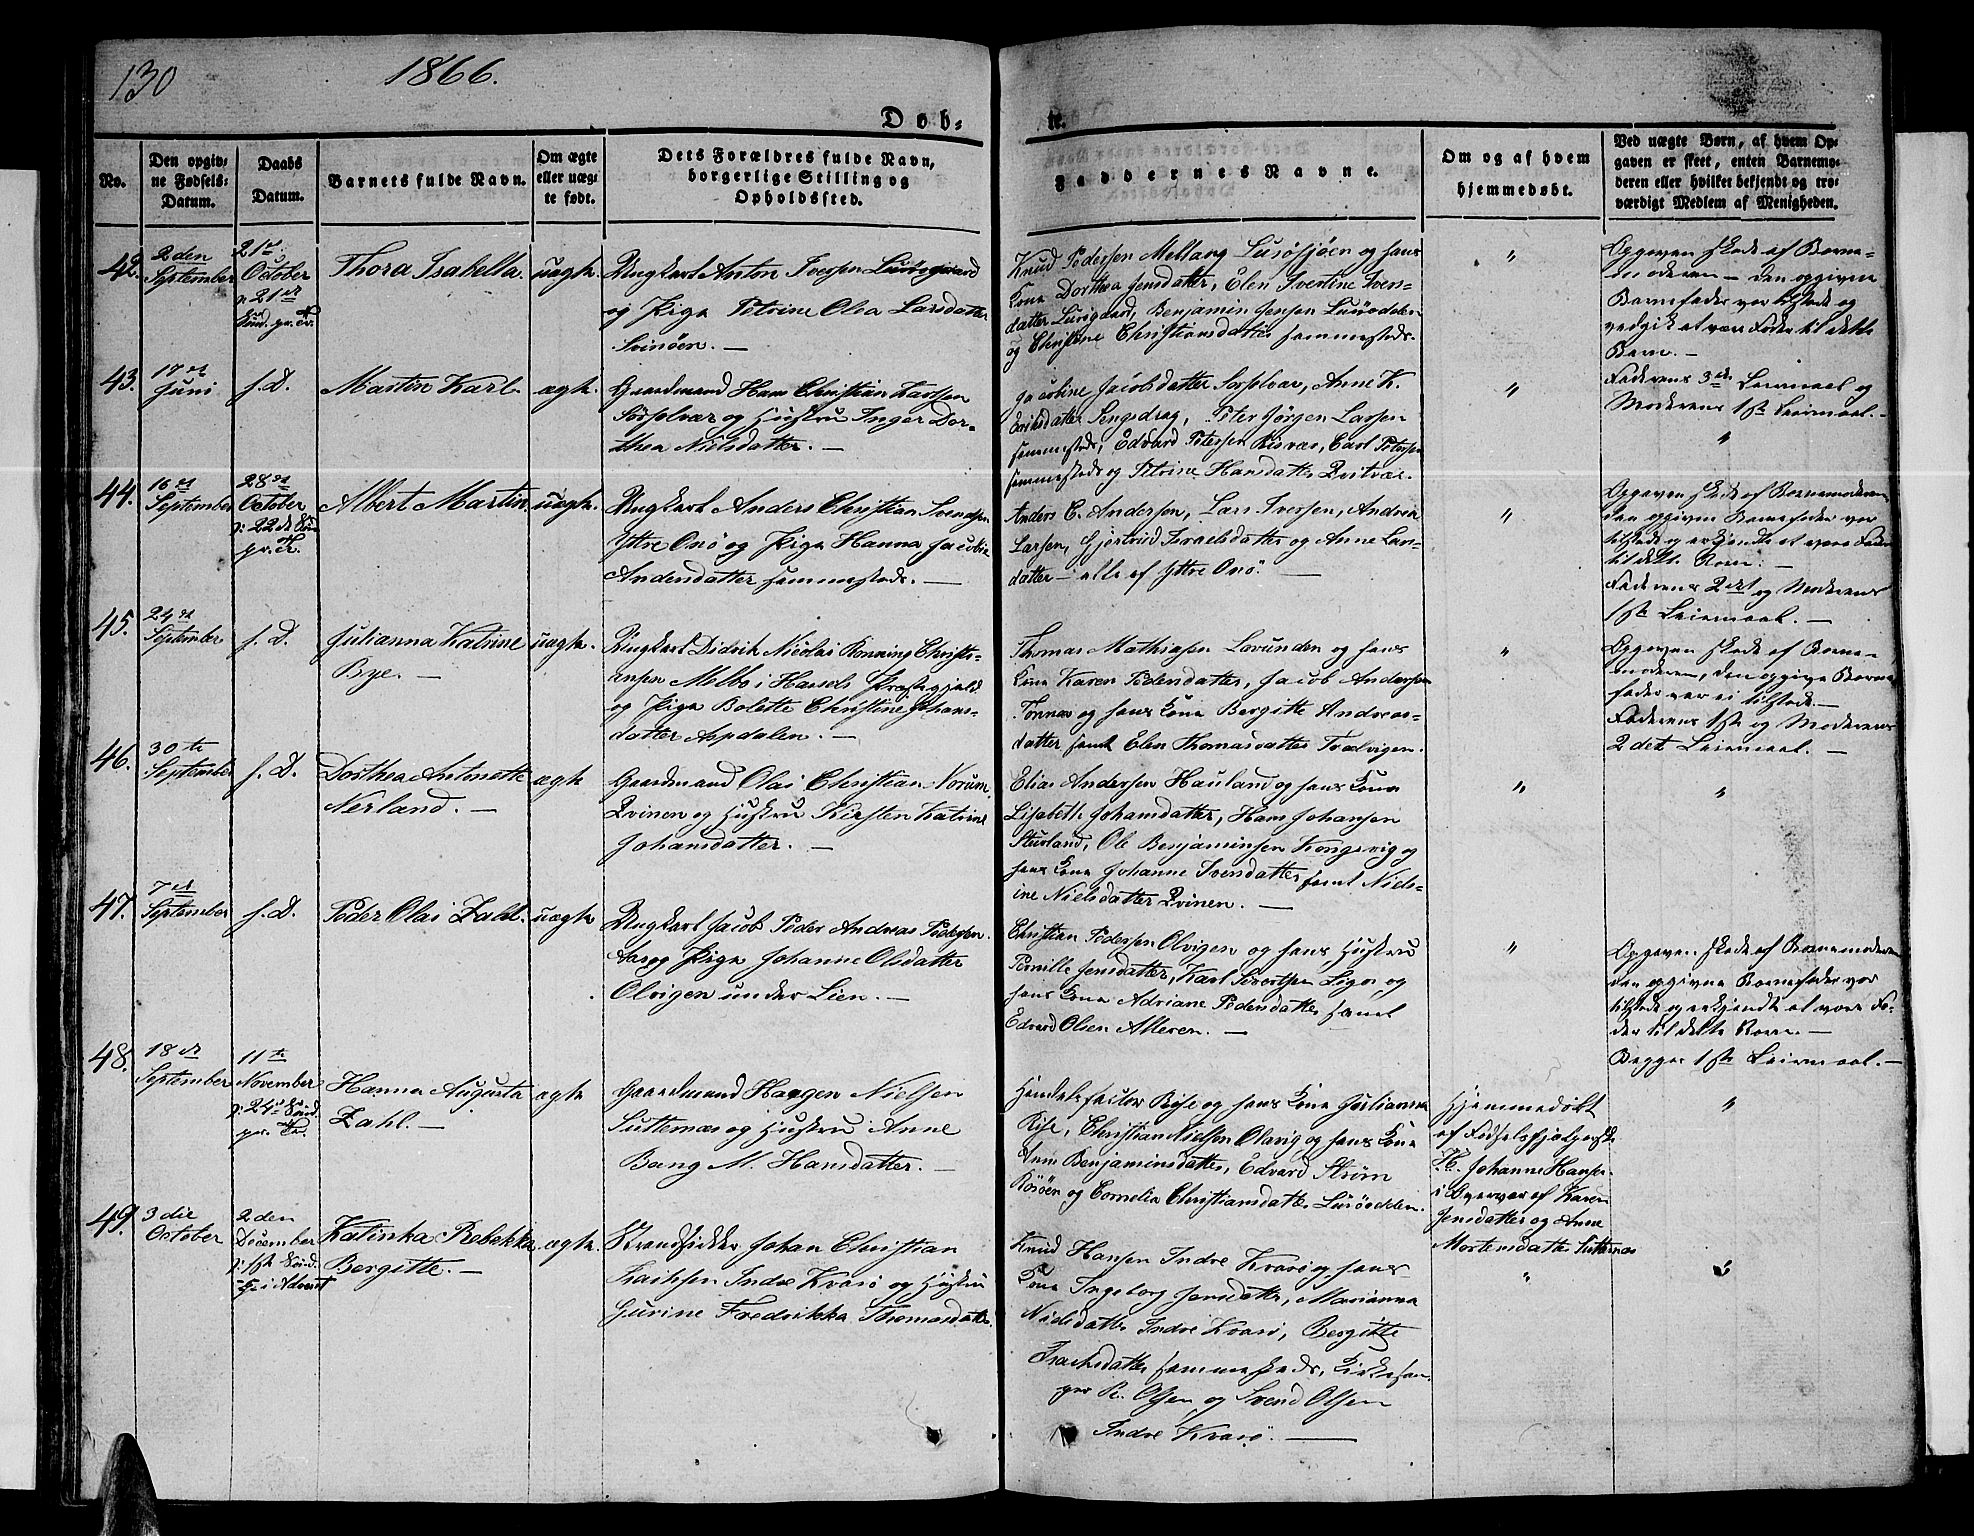 130
1866.
Døb-
te.
No.
Den opgiv-
ne Fødsels-
Datum.
Daabs
Datum.
Barnets fulde Navn.
Om ægte
eller uæg-
te født.
Dets Forældres fulde Navn,
borgerlige Stilling og
Opholdssted.
Faddernes Navne.
Om og af hvem
hjemmedøbt.
Ved uægte Børn, af hvem Op-
gaven er skeet, enten Barnemo-
deren eller hvilket bekjendt og tro-
værdigt Medlem af Menigheden.
42.
2den
September
21de
October
Thora Isabella.
uægte.
Ungkarl Anton Iversen Lurøgaard
og Pige Petrine Olea Larsdatter
Svinøen. —
Knud Pedersen Mellang Lurøsjøen og hans
Kone Dorthea Jensdatter, Elen Ivertine Ivers-
datter Lurøgaard, Benjamin Jensen Lurøodden
og Christine Christiansdatter sammesteds.
"
Opgaven skede af Barne-
moderen — den opgivne
Barnefader var tilstede og
vedgik at være Fader til dette
Barn. —
Faderens 3de Leiermaal og
Moderens 1ste Leiermaal. —
43.
17de
Juni
s. D.
Martin Karl
ægte.
Gaardmand Hans Christian Karlsen
Sørsolvær og Hustru Inger Dor-
thea Nilsdatter. —
Jacobine Jacobsdatter Sorsolvær, Anne K.
Eriksdatter Sengedrag, Peter Jørgen Larsen
sammesteds, Edvard Petersen Risvær, Carl Petersen
sammesteds og Petrine Hansdatter
"
"
44.
16de
September
28de
October
Albert Martin
uægte.
Ungkarl Anders Christian Svendsen
Yttre Onø og Pige Hanna Jacobine
Andersdatter sammesteds. —
Anders C. Andersen, Lars Iversen, Andrea
Larsen, Gjertrud Israelsdatter og Anne Lars-
datter — alle af Yttre Onø. —
"
Opgaven skede af Barnemoderen
den opgivne Barnefader var
tilstede og erkjendte at være Fader
til dette Barn. —
Faderens 2det og Moderens
1ste Leiermaal. —
45.
24de
September
s. D.
Julianna Katrine
Bye. —
uægte.
Ungkarl Didrik Nicolai Rønning Christi-
ansen Melbo i Hassels Præstegjeld
og Pige Bolette Christine Johans-
datter Aspdalen. —
Thomas Mathisen Lovunden og hans
Kone Karen Pedersdatter, Jacob Andersen
Tonnes og hans Kone Bergitte Andreas-
datter samt Elen Thomasdatter Trælvigen.
"
Opgaven skede af Barne-
moderen, den opgivne Barne-
fader var ei tilstede. —
Faderens 1ste og Moderens
2det Leiermaal. —
46.
30te
September
s. D.
Dorthea Antonette
Nerland. —
ægte
Gaardmand Olai Christian Norum
Qvinen og Hustru Kirsten Katrine
Johansdatter. —
Elias Andersen Hauland og hans Kone
Lisabeth Johansdatter, Hans Johansen
Stuvland, Ole Benjaminsen Kongsvig og
hans Kone Johanne Iversdatter samt Niels-
ine Nielsdatter Qvinen. —
"
"
47.
7de
September
s. D.
Peder Olai Zahl.
uægte
Ungkarl Jacob Peder Andreas Pedersen.
Aas og Pige Johanne Olsdatter
Olvigen under Lien. —
Christian Pedersen Olvigen og hans Hustru
Pernille Jensdatter, Karl Sivertsen Ligos og
hans Kone Adriane Pedersdatter samt
Edvard Olsen Alteren. —
"
Opgaven skede af Barnemoderen
den opgivne Barnefader var
tilstede og erkjendt at være Fa-
der til dette Barn. —
Begges 1ste Leiermaal. —
48.
18de
September
11te
November
Hanna Augusta
Zahl. —
ægte
Gaardmand Haagen Nielsen
Sutternæs og Hustru Anne
Bang M. Hansdatter. —
Handelsfactor Riise og hans Kone Julianna
Riise, Christian Nielsen Olavig og hans Kone
Anne Benjaminsdatter, Edvard Strøm
Rosøen og Cornelia Christiansdatter Lurøodden.
Hjemmedøbt
af Fødselshjælperske
Johanne Hansen
i Overvær af Karen
Jensdatter og Anne
Mortensdatter Sutternæs
"
49.
3die
October
2den
December
1ste Sønd.
i Advent
Katinka Rebekka
Bergitte. —
ægte.
Strandsidder Johan Christian
Isachsen Indre Kvarø og Hustru
Gurine Fredrikka Thomasdatter.
Knud Hansen Indre Kvarø og hans
Kone Ingeborg Jensdatter, Marianna
Nielsdatter Indre Kvarø, Bergitte
Isachsdatter sammesteds, Kirkesan-
ger R. Olsen og Svend Olsen
Indre Kvarø. —
"
"